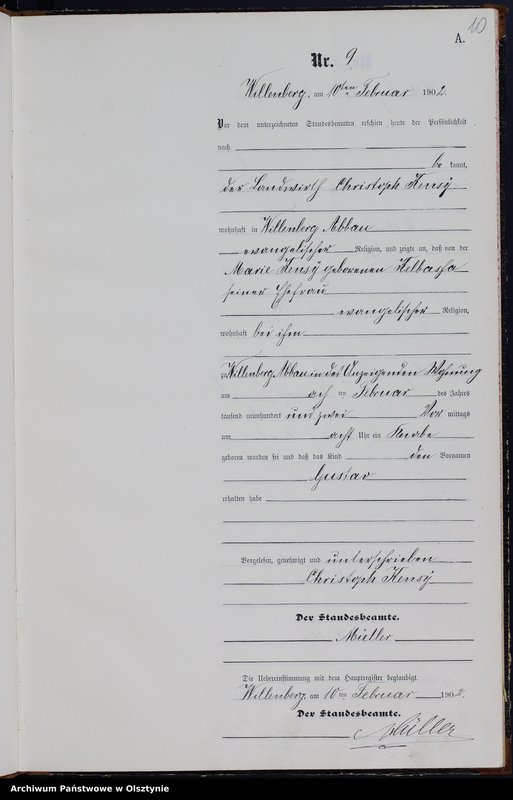 10
A.
Nr. 9
Willenberg, am 10ten Februar 1902.
Vor dem unterzeichneten Standesbeamten erschien heute der Persönlichkeit
nach
be kannt,
der Landwirth Christoph Kensy
wohnhaft in Willenberg Abbau
evangelischer Religion, und zeigte an, daß von der
Marie Kensy geborenen Kelbassa
seiner Ehefrau
evangelischer Religion,
wohnhaft bei ihm
zu Willenberg Abbau in des Anzeigenden Wohnung
am ach ten Februar des Jahres
tausend neunhundert und zwei Vor mittags
um acht Uhr ein Knabe
geboren worden sei und daß das Kind den Vornamen
Gustav
erhalten habe
Vorgelesen, genehmigt und unterschrieben
Christoph Kensy
Der Standesbeamte.
Müller
Die Uebereinstimmung mit dem Hauptregister beglaubigt.
Willenberg, am 10 ten Februar 1902.
Der Standesbeamte.
Müller
Archiwum Państwowe w Olsztynie